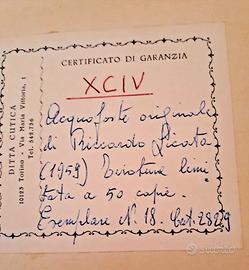 CERTIFICATO DI GARANZIA
XCIV
Acquaforte originale
di Riccardo Licata
(1959) Tiratura limi
tata a 50 copie.
Esemplare N. 18. Cat. 2829
DITTA CUTICA
10123 Torino - Via Maria Vittoria, 1
Tel. 542.736
subito